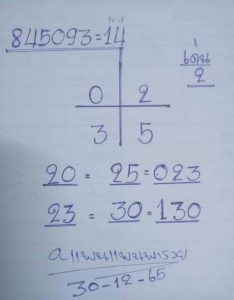 845093=14
เด่น
2
0 2
3 5
20 = 25=023
23 = 30-130
30-12-65